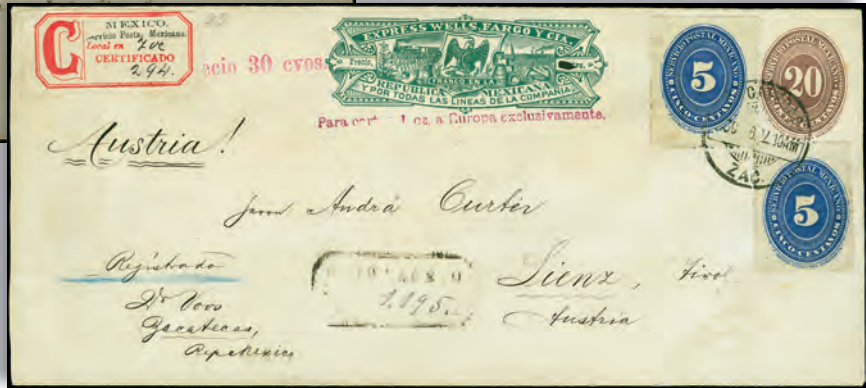 MEXICO.
Servicio Postal Mexicano.
Local en Zac
C CERTIFICADO
294.
ecio 30 cvos.
EXPRESS WELLS, FARGO Y CIA.
FRANCO EN LA
REPUBLICA MEXICANA
Y POR TODAS LAS LINEAS DE LA COMPAÑIA.
Para 1 oz. a Europa exclusivamente.
SERVICIO POSTAL MEXICANO
5
CINCO CENTAVOS
SERVICIO POSTAL MEXICANO
20
10AM
ZAC.
SERVICIO POSTAL MEXICANO
5
CINCO CENTAVOS
Austria!
Herrn André Curter
Registrado
Lienz, Tirol
1.195
Austria
Dr Voos
Zacatecas,
Rep Mexico